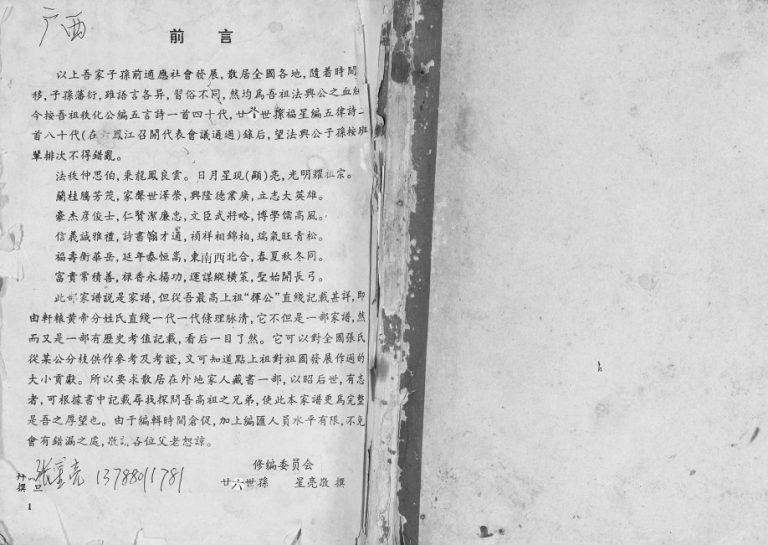 广西
前言
以上吾家子孫前適應社會發展，散居全國各地，隨着時間
移，子孫藩衍，雖語言各异，習俗不同，然均爲吾祖法興公之血
今按吾祖秩化公編五言詩一首四十代，廿六世孫福星編五律詩
首八十代(在六鳳江召開代表會議通過)録后，望法興公子孫按班
輩排次不得錯亂。
法秩仲思伯，秉龍鳳良雲。日月星現(顯)亮，光明耀祖宗。
蘭桂騰芳茂，家聲世澤榮，興隆德業廣，立志大英雄。
豪杰彦俊士，仁賢潔廉忠，文臣武將略，博學儒高風。
信義誠雅禮，詩書翰才通，禎祥相錦柏，瑞氣旺青松。
福壽衡華岳，延年泰恒嵩，東南西北合，春夏秋冬同。
富貴常積善，禄香永揚功，運謀縱横策，聖始開長弓。
此部家譜説是家譜，但從吾最高上祖“揮公”直綫記載甚詳，即
由軒轅黄帝分姓氏直綫一代一代條理脉清，它不但是一部家譜，然
而又是一部有歷史考值記載，看后一目了然。它可以對全國張氏
從某公分枝供作參考及考證，文可知道點上祖對祖國發展作過的
大小貢獻。所以要求散居在外地家人藏書一部，以昭后世，有志
者，可根據書中記載尋找探問吾高祖之兄弟，使此本家譜更爲完整
是吾之厚望也。由于編輯時間倉促，加上編匯人員水平有限，不免
會有錯漏之處，敬請各位父老恕諒。
修編委员会
廿六世孫 星亮敬撰
張星亮 13788011781
1